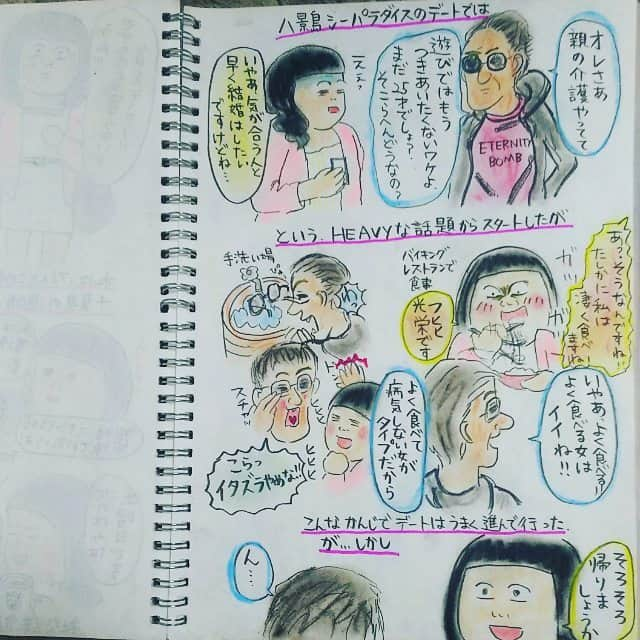 八景島シーパラダイスのデートでは
オレさあ
親の介護やってて
遊びではもう
つきあいたくないワケよ
まだ25才でしょ?
そこらへんどうなの?
ETERNITY
BOMB
いやあ、気が合う人と
早く結婚はしたい
ですけどね…
という、HEAVYな話題からスタートしたが
バイキング
レストランで
食事
ガツ
ガツ
あっ…そうなんですね
たしかに私は
凄く食べ
フツーに
手洗い場
いやあ、よく食べる!!
よく食べる女は
イイね!!
よく食べて
病気しない女が
タイプだから
スチャッ
ヒヒヒヒ
こらっ
イタズラやめな!!
こんなかんじでデートはうまく進んで行った
が…しかし
そろそろ
帰りま
しょうか
ん…